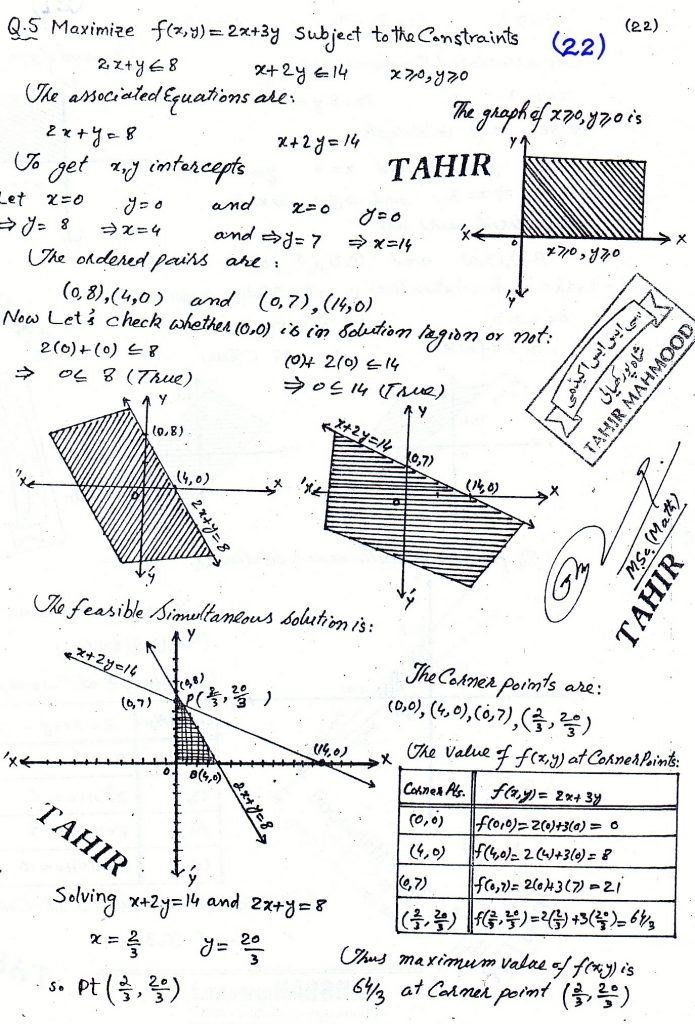 Q.5 Maximize f(x,y) = 2x+3y subject to the Constraints (22) (22)
2x+y≤8 x+2y≤14 x≥0, y≥0
The associated Equations are:
2x+y=8 x+2y=14
The graph of x≥0, y≥0 is
To get x,y intercepts
TAHIR
Let x=0 y=0 and x=0 y=0
⇒y=8 ⇒x=4 and ⇒y=7 ⇒x=14
Y
X' X
0
x≥0, y≥0
Y'
The ordered pairs are:
(0,8),(4,0) and (0,7),(14,0)
Now Let's check whether (0,0) is in Solution region or not:
2(0)+(0) ≤8 (0)+2(0) ≤14
⇒ 0≤8 (True) ⇒ 0≤14 (True)
سی ایس ایس اکیڈمی
TAHIR MAHMOOD
M.Sc. (Math)
TAHIR
Y
(0,8)
(4,0)
'X X
0
2x+y=8
'Y
Y
x+2y=14
(0,7)
(14,0)
'X X
0
'Y
The feasible Simultaneous solution is:
Y
x+2y=14
(0,8)
(0,7) P(2/3, 20/3)
(14,0)
'X X
0 B(4,0)
2x+y=8
'Y
TAHIR
The Corner points are:
(0,0),(4,0),(0,7),(2/3, 20/3)
The value of f(x,y) at Corner Points:
Corner Pts. f(x,y) = 2x+3y
(0,0) f(0,0)=2(0)+3(0) = 0
(4,0) f(4,0)=2(4)+3(0)=8
(0,7) f(0,7)=2(0)+3(7)=21
(2/3, 20/3) f(2/3, 20/3)=2(2/3)+3(20/3)=64/3
Solving x+2y=14 and 2x+y=8
x = 2/3 y = 20/3
so Pt (2/3, 20/3)
Thus maximum value of f(x,y) is
64/3 at Corner point (2/3, 20/3)